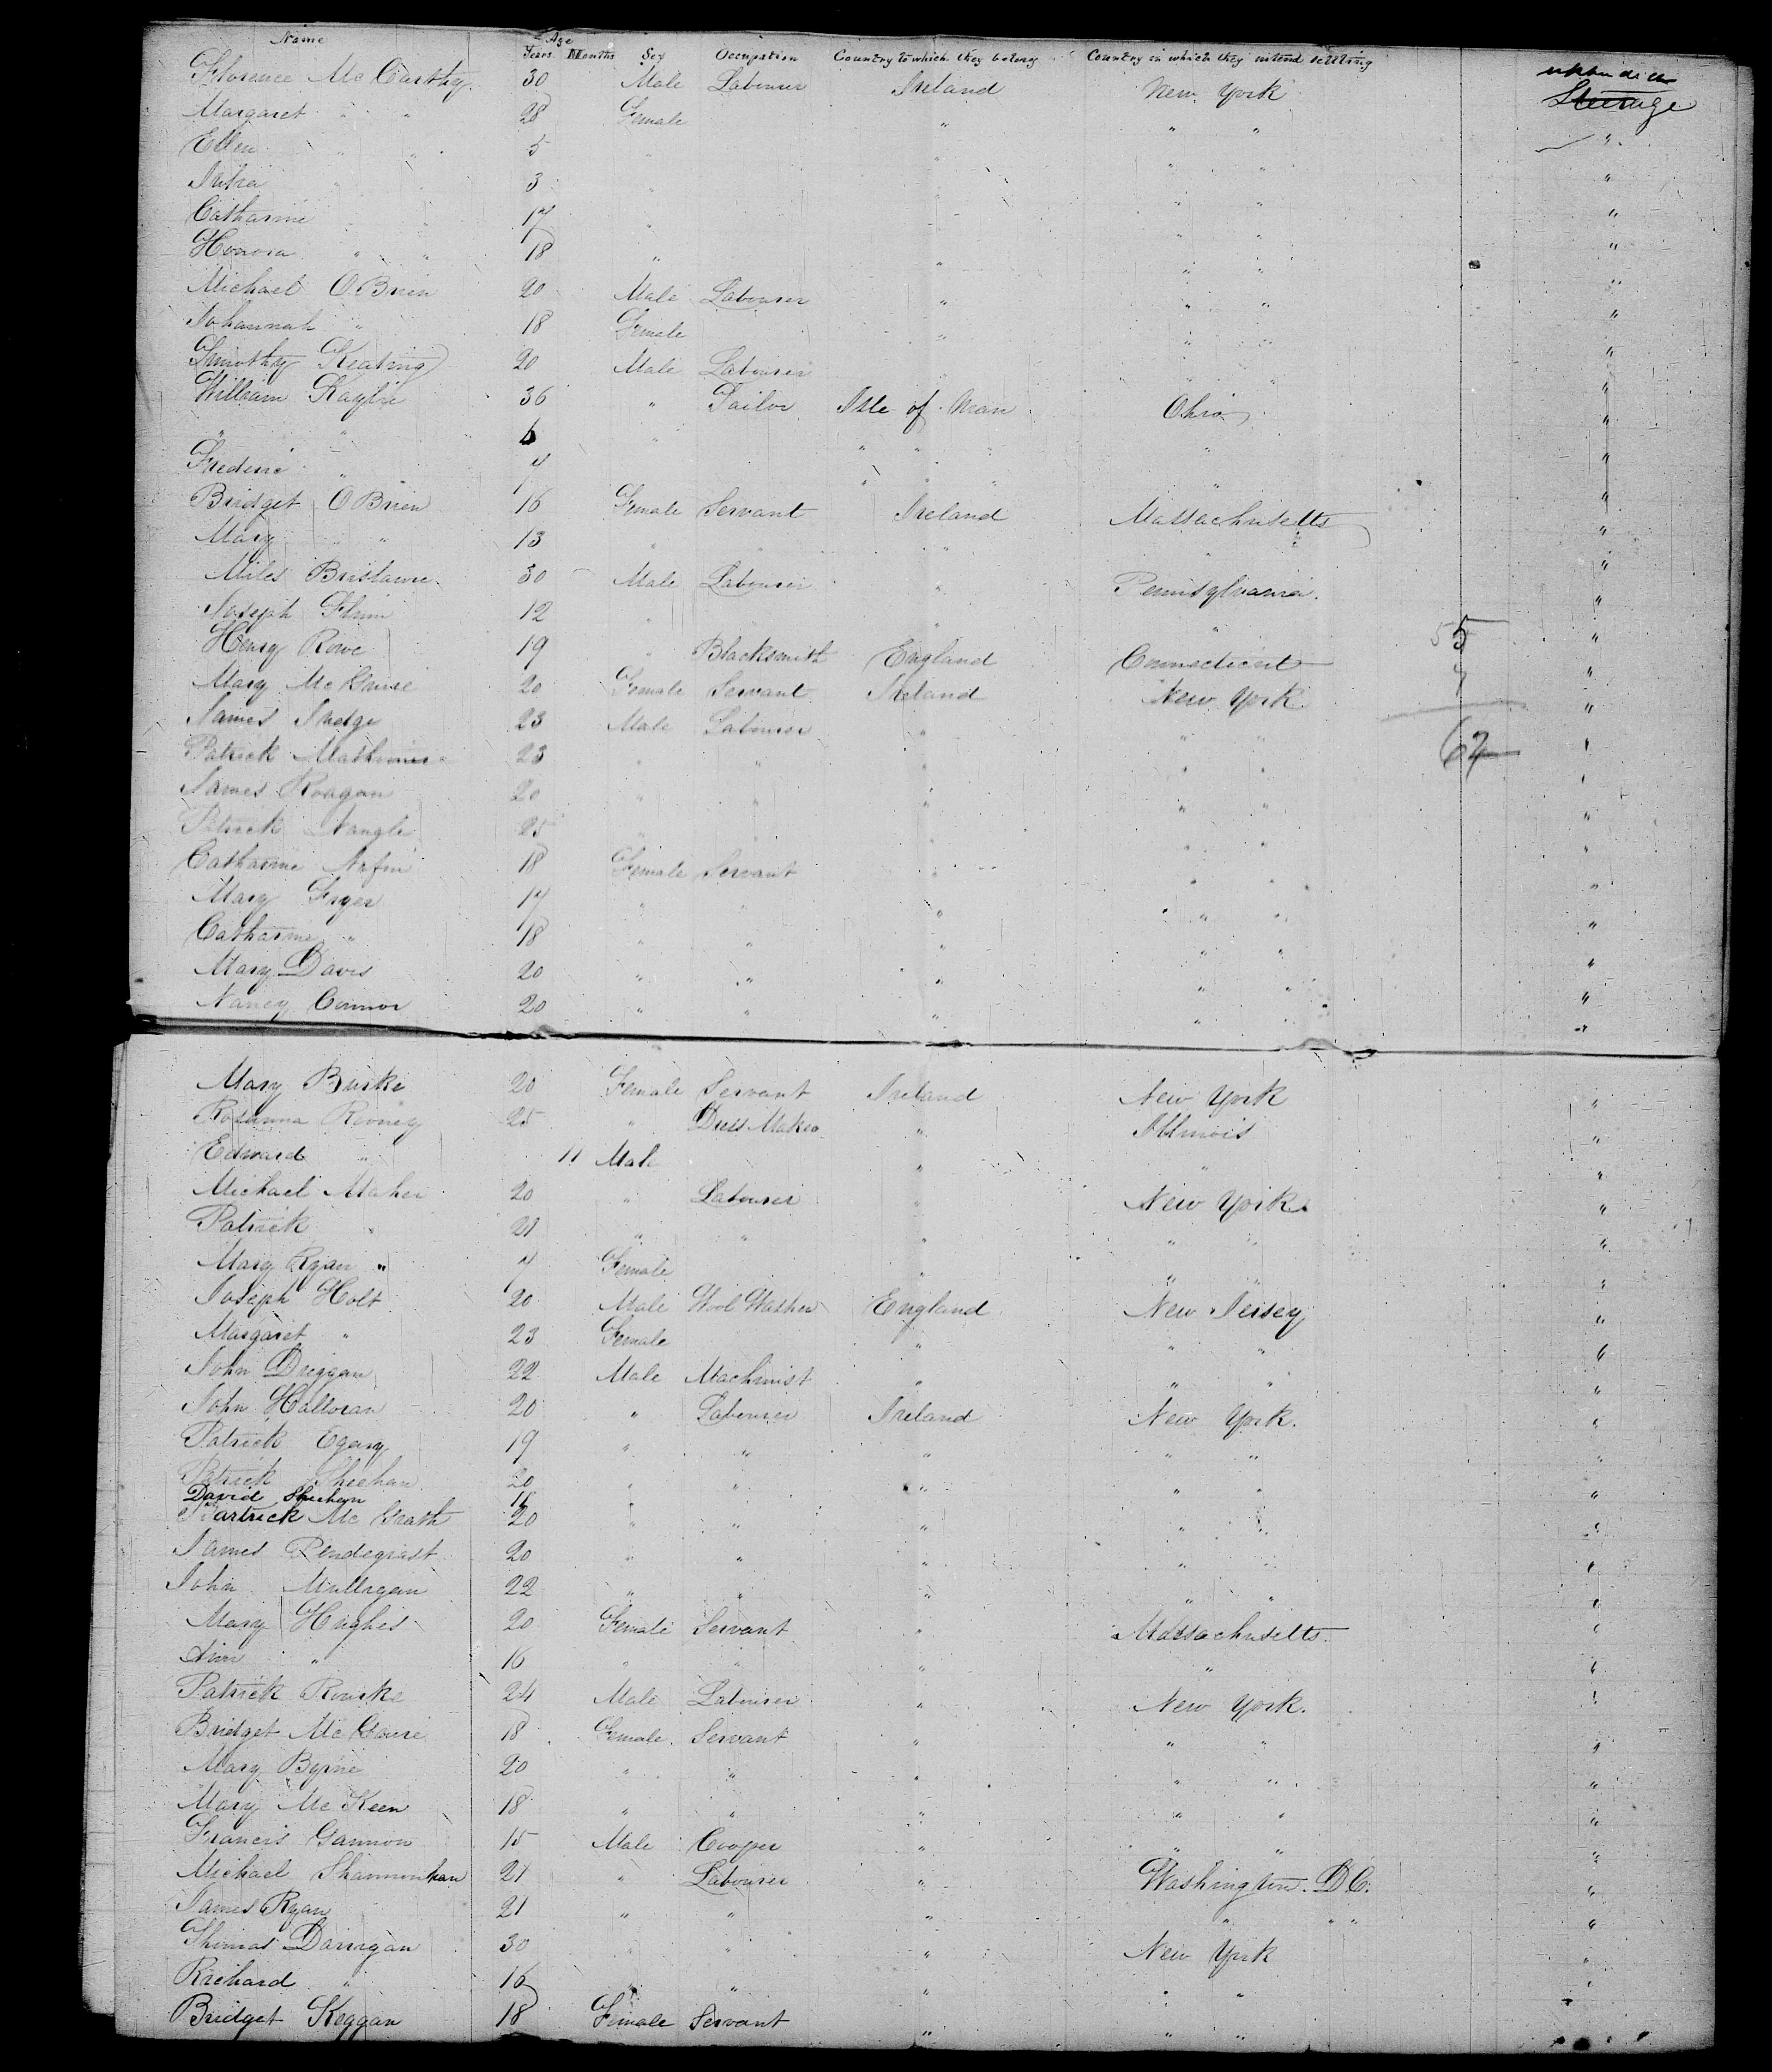 Name Age Years Months Sex Occupation Country to which they belong Country in which they intend settling
Florence McCarthy 30 Male Labourer Ireland New York Steerage
Margaret " " 28 Female " " " "
Ellen " " 5 " " " " "
3 " " " " "
Catharine " " 17 " " " " "
Honora " " 18 " " " " "
Michael O'Brien 20 Male Labourer " " " "
Johannah " 18 Female " " " "
Timothy Keating 20 Male Labourer " " " "
William 36 " Tailor Isle of Man Ohio "
" " 6 " " " " " "
Frederic " 4 " " " " "
Bridget O'Brien 16 Female Servant Ireland Massachusetts "
Mary " 13 " " " " "
Miles 30 Male Labourer " Pennsylvania. "
Joseph 12 " " " "
Henry Rowe 19 " Blacksmith England Connecticut 55 "
Mary McGuire 20 Female Servant Ireland New York 7 "
James 23 Male Labourer " " " "
Patrick 23 " " " " " 62 "
James Roagan 20 " " " " " "
Patrick Nangle 25 " " " " " "
Catharine 18 Female Servant " " " "
Mary Fryer 17 " " " " " "
Catharine " 18 " " " " " "
Mary Davis 20 " " " " " "
Nancy Connor 20 " " " " " "
Mary Burke 20 Female Servant Ireland New York "
Rosanna Rooney 25 " Dress Maker " Illinois "
Edward " 11 Male " " "
Michael Maher 20 " Labourer " New York "
Patrick " 21 " " " " " "
Mary Ryan " 4 Female " " " "
Joseph Holt 20 Male Wool Washer England New Jersey "
Margaret " 23 Female " " " "
John Duggan 22 Male Machinist " " " "
John Halloran 20 " Labourer Ireland New York. "
Patrick Egary 19 " " " " " "
Patrick Sheehan 20 " " " " " "
David Sheehan 11 "
Partrick McGrath 20 " " " " " "
James Pendegrast 20 " " " " "
John Mullagan 22 " " " " " "
Mary Hughes 20 Female Servant " Massachusetts. "
Ann " 16 " " " " "
Patrick Rourke 24 Male Labourer " New York. "
Bridget McGuire 18 Female Servant " " " "
Mary Byrne 20 " " " " " "
Mary McKeen 18 " " " " " "
Francis Gannon 15 Male Cooper " " " "
Michael Shannonhan 21 " Labourer " Washington. D.C. "
James Ryan 21 " " " " " " "
Thomas Dorrigan 30 " " " New York "
Richard " 16 " " " " " "
Bridget Keggan 18 Female Servant " " " "